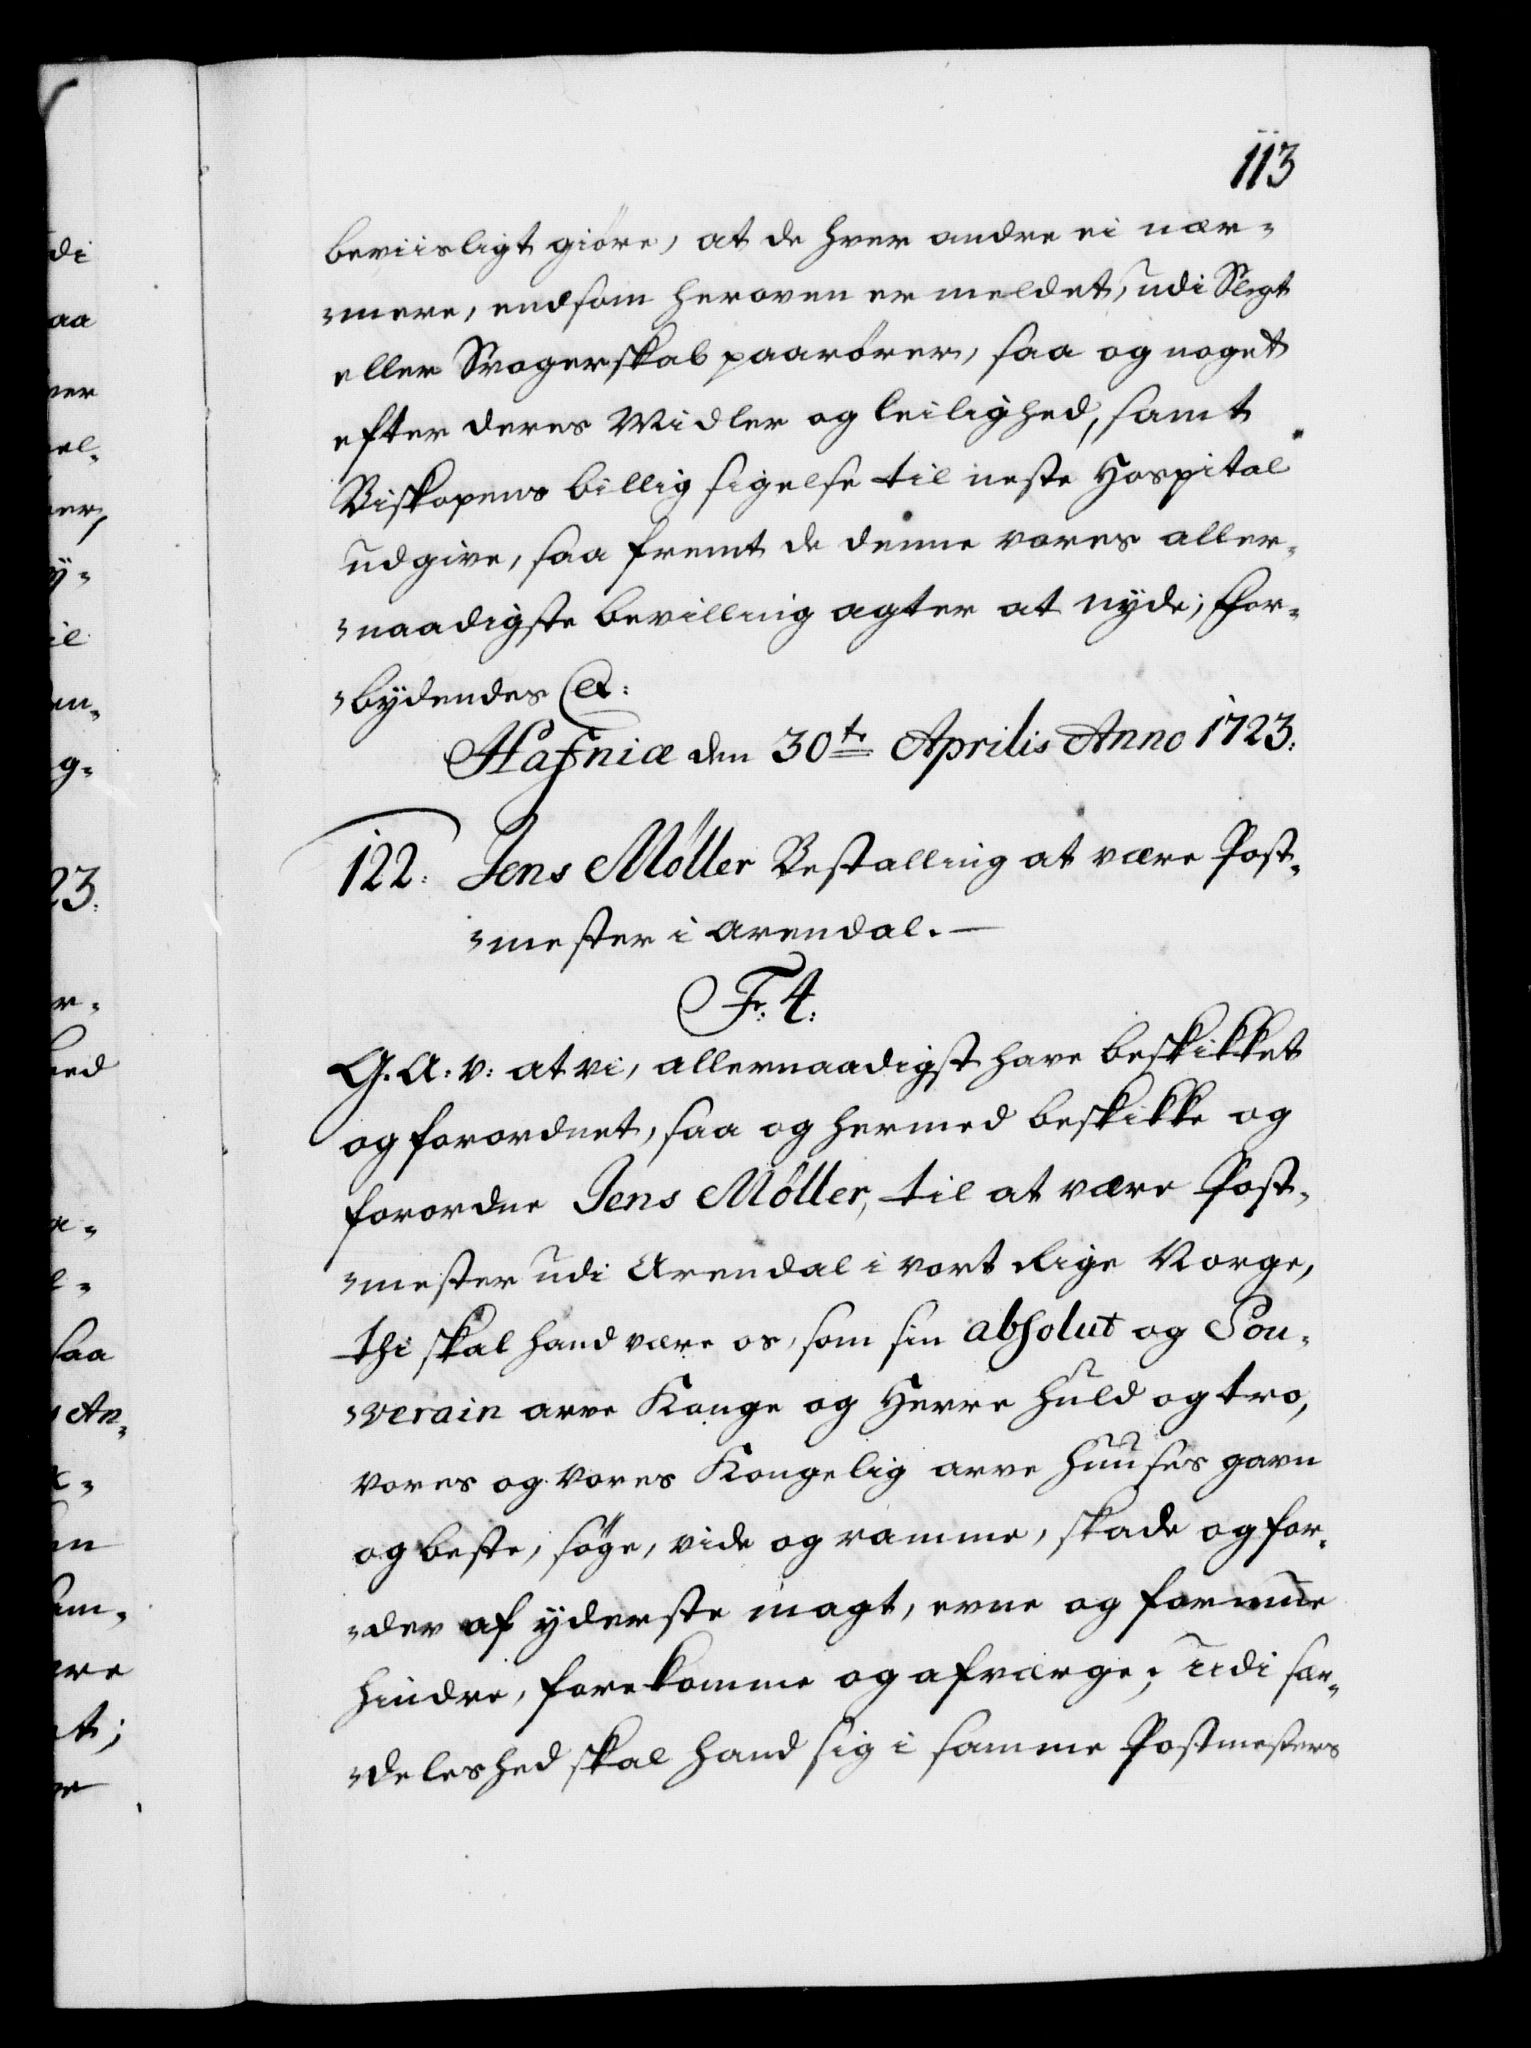 113
beviisligt giöre, at de hver andre ei nær-
-mere, end som heroven er meldet, udi Slegt
eller Svogerskab paarörer, saa og noget
efter deres Midler og leilighed, samt
Biskopens billig sigelse til neste Hospital
udgive, saa fremt de denne vores aller-
-naadigste bevilling agter at nyde; For-
-bydendes &c:
Hafniæ den 30te Aprilis Anno 1723.
122. Jens Møller Bestalling at være Post-
-mester i Arendal.
Fr. 4:
G. A. V: at vi, allernaadigst have beskikket
og forordnet, saa og hermed beskikke og
forordne Jens Møller, til at være Post-
-mester udi Arendal i vort Rige Norge,
thi skal hand være os, som sin absolut og Sou-
-verain arve Konge og Herre huld og tro,
vores og vores Kongelig arve Huuses gavn
og beste, søge, vide og ramme, skade og for-
-der af yderste magt, evne og formue
hindre, forekomme og afværge; Udi sær-
-deleshed skal hand sig i samme Postmesters
di
aa
ner
el-
er,
ÿ-
il
en-
g-
23.
r-
ed
saa
An-
en
ere
t;